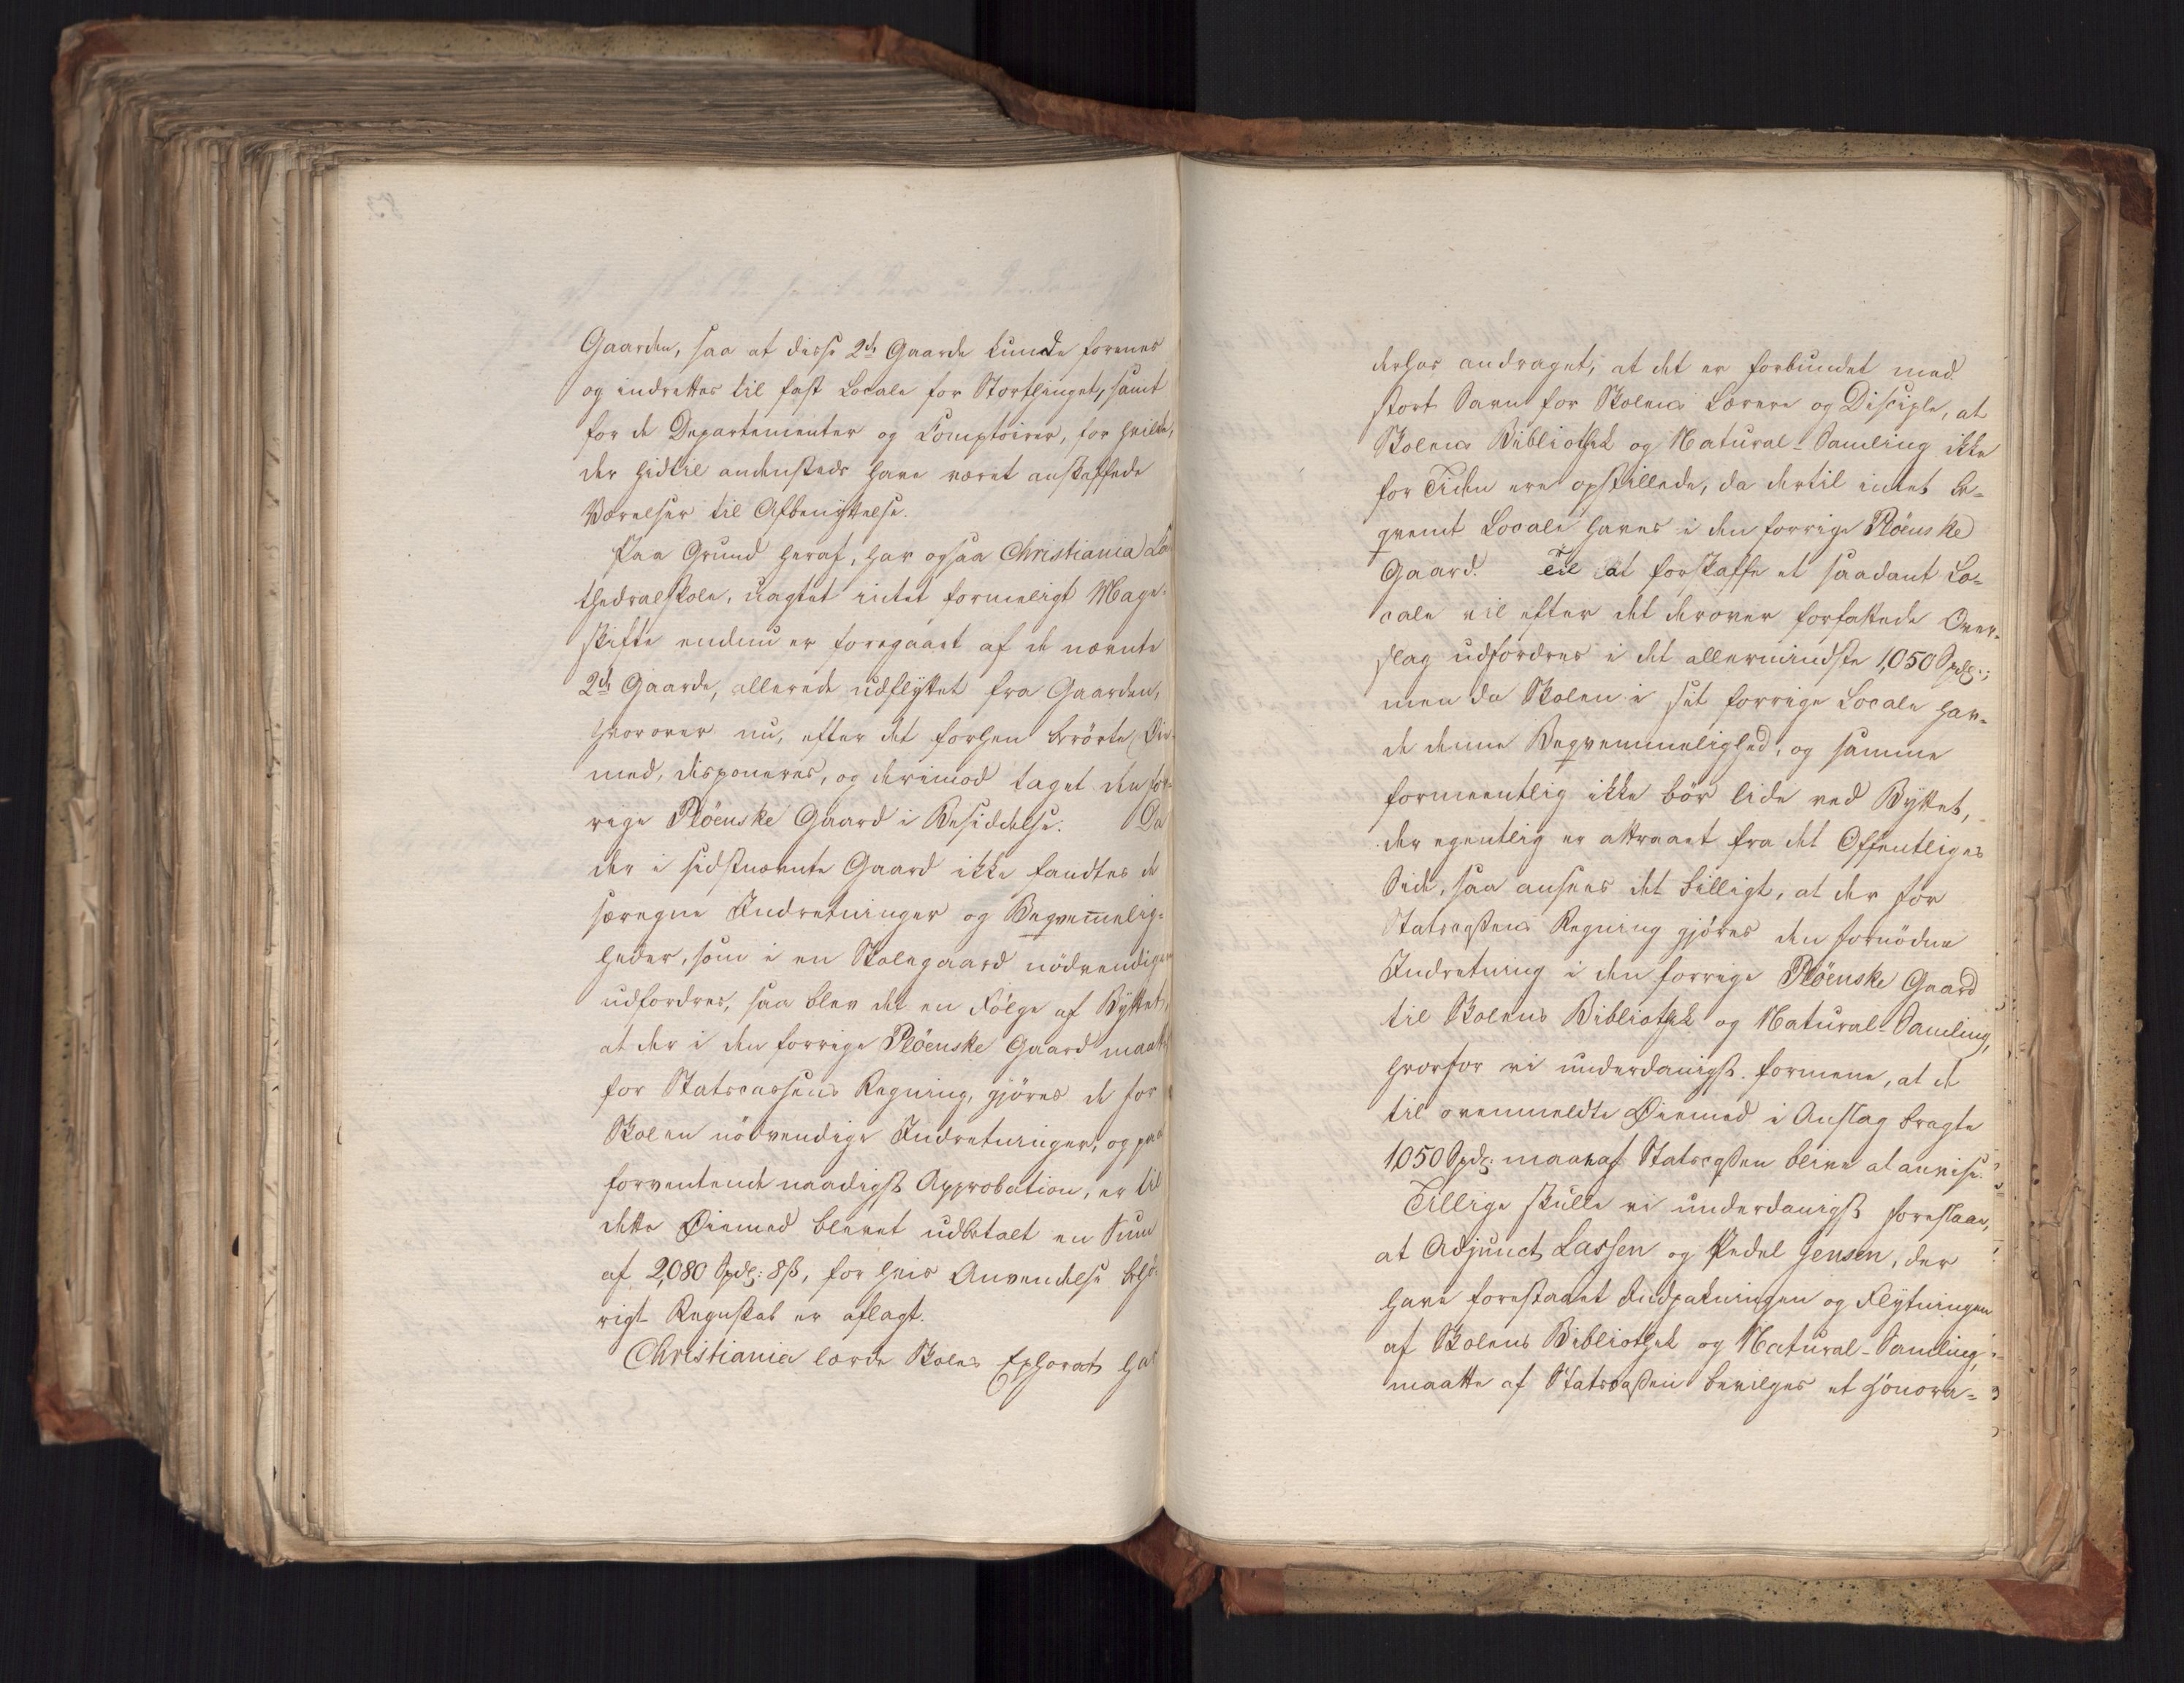 Gaarden, saa at disse 2de Gaarde kunde forenes
og indrettes til fast Locale for Storthinget, samt
for de Departementer og Comptoirer, for hvilke,
der hidtil andensteds have været anskaffede
Værelser til Afbenyttelse.
Paa Grund heraf, har ogsaa Christiania Ca
thedralskole, uagtet intet formeligt Mage-
skifte endnu er foregaaet af de nævnte
2de Gaarde, allerede udflyttet fra Gaarden,
hvorover nu, efter det forhen berörte Øie-
med, disponeres, og derimod taget den for-
rige Plöenske Gaard i Besiddelse. Da
der i sidstnævnte Gaard ikke fandtes de
særegne Indretninger og Beqvemelig-
heder, som i en Skolegaard nödvendigen
udfordres, saa blev det en Fölge af Byttet,
at der i den forrige Plöenske Gaard maatte
for Statscassens Regning, gjöres de for
Skolen nödvendige Indretninger, og paa
forventende naadigst Approbation, er til
dette Øiemed blevet udbetalt en Sum
af 2,080 Spd: 8 β, for hvis Anvendelse behö-
rigt Regnskab er aflagt.
Christiania lærde Skoles Ephorat har
derhos andraget, at det er forbundet med
stort Savn for Skolens Lærere og Disciple, at
Skolens Bibliothek og Natural-Samling ikke
for Tiden ere opstillede, da dertil intet be-
qvemt Locale haves i den forrige Plöenske
Gaard. Til at forskaffe et saadant Lo-
cale vil efter det derover forfattede Over-
slag udfordres i det allermindste 1,050 Spd:;
men da Skolen i sit forrige Locale hav-
de denne Beqvemmelighed, og samme
formeentlig ikke bör lide ved Byttet,
der egentlig er attraaet fra det Offentliges
Side, saa ansees det billigt, at der for
Statscassens Regning gjöres den fornödne
Indretning i den forrige Plöenske Gaard
til Skolens Bibliothek og Natural-Samling,
hvorfor vi underdanigst formene, at de
til ovenmeldte Øiemed i Anslag bragte
1050 Spd: maae af Statscassen blive at anvise.
Tillige skulle vi underdanigst foreslaae,
at Adjunct Lassen og Pedel Jensen, der
have forestaaet Indpakningen og Flytningen
af Skolens Bibliothek og Natural-Samling,
maatte af Statscassen bevilges et Honora-